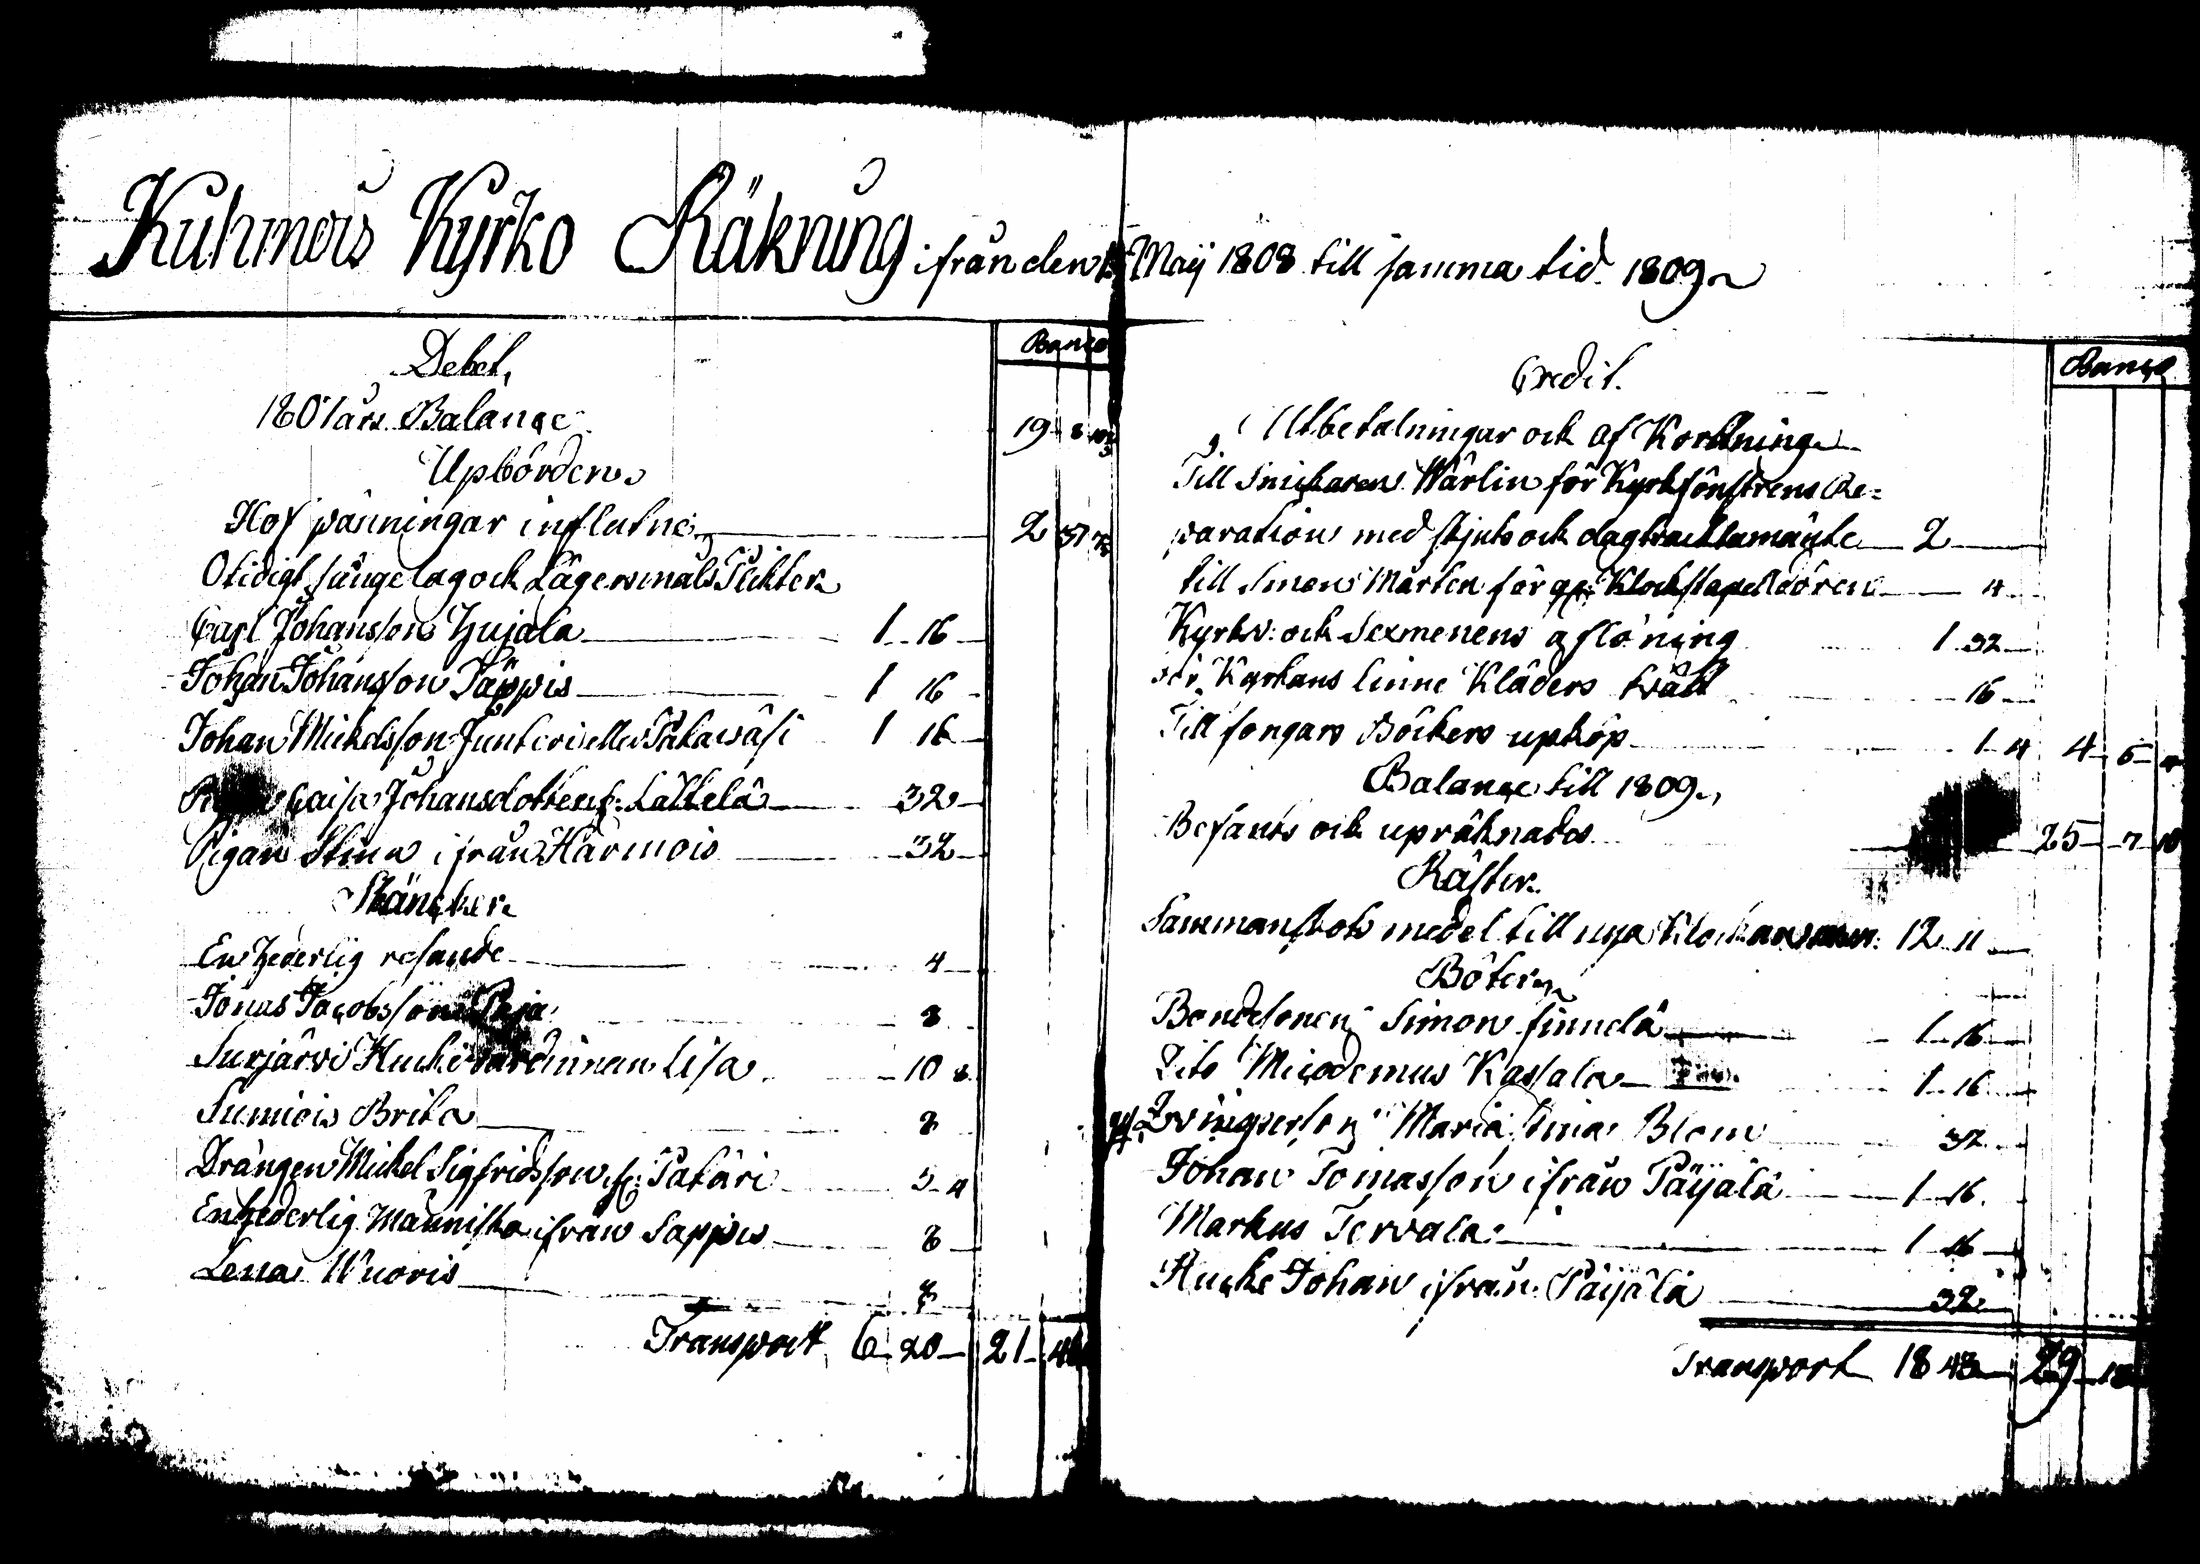 Kuhmois Kyrko Räkning ifrån den 1 Maÿ 1808 till samma tid 1809
Debet, Banco
1807 års Balance 19 8
Upbörden
Hof pänningar influtne 2 37
Otidigt sängelag och Lägersmåls Plikter
Carl Johansson Hujala 1 16
Johan Johansson Päppis 1 16
Johan Mickelsson Junteri eller Pataväsi 1 16
Caisa Johansdotter ifr: Lästelä 32
Pigan Stina ifrån Harmois 32
Skäncker
En hederlig resande 4
Jonas Jacobsson 8
Surjärvi Huski värdinnan Lisa 10 8
Sumiois Brita 8
Drängen Mickel Sigfridsson ifr: Patari 5 4
En hederlig Människa ifrån Sappis 8
Lena Wuoris 8
Transport 6 20 21 46
Credit. Banco
Utbetalningar och af Kortning
Till Snickaren Wärlin för Kyrkfönstrens Re=
paration med skjuts och dagtracktamänte 2
till Simon Mårten för Klockstapelldören 4
Kyrkv: och Sexmenens aflöning 1 32
för Kyrkans linne Kläders tvätt 16
Till fongars Böckers upköp 1 4 4 5 4
Balance till 1809
Befants och upräknades 25 7 10
Räster
Sammanskots medel till nya Klockan 12 11
Böter
Bondesonen Simon Finnelä 1 16
Dito Nicodemus Kassala 1 16
Maria Stina Blom 32
Johan Tomasson ifrån Päÿälä 1 16
Markus Tervala 1 16
Huske Johan ifrån Päijälä 32
Transport 18 43 29 13